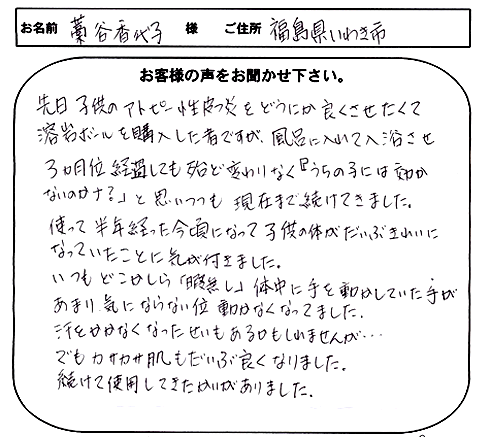 お名前 藁谷香代子 様 ご住所 福島県いわき市
お客様の声をお聞かせ下さい。
先日子供のアトピー性皮フ炎をどうにか良くさせたくて
溶岩ボールを購入した者ですが、風呂に入れて入浴させ
3ヵ月位経過しても殆ど変わりなく『うちの子には効か
ないのかナ?』と思いつつも現在まで続けてきました。
使って半年経った今頃になって子供の体がだいぶきれいに
なっていたことに気が付きました。
いつもどこかしら「暇無し」体中に手を動かしていた手が
あまり気にならない位動かなくなってました。
汗をかかなくなったせいもあるかもしれませんが…
でもカサカサ肌もだいぶ良くなりました。
続けて使用してきたかいがありました。